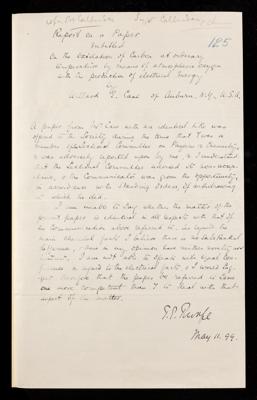 125
Report on a Paper
entitled
On the Oxidation of Carbon at ordinary
temperatures by means of atmospheric oxygen
with the production of electrical energy
by
Willard E. Case of Auburn, N.Y., U.S.A.
A paper from Mr Case with an identical title was
offered to the Society during the time that I was a
member of Sectional Committee on Physics & Chemistry,
& was adversely reported upon by me. I understand
that the Sectional Committee advised its non-accept-
ance, & the Communicator was given the opportunity,
in accordance with Standing Orders, of withdrawing
it which he did.
I am unable to say whether the matter of the
present paper is identical in all respects with that of
the Communication above referred to. As regards the
main chemical facts I believe there is no substantial
difference, & these in my opinion have neither novelty nor
I am not able to speak with equal con-
fidence in regard to the electrical facts, & I would sug-
gest therefore that the paper be referred to some
one more competent than I to deal with that
aspect of the matter.
May 11. 99.